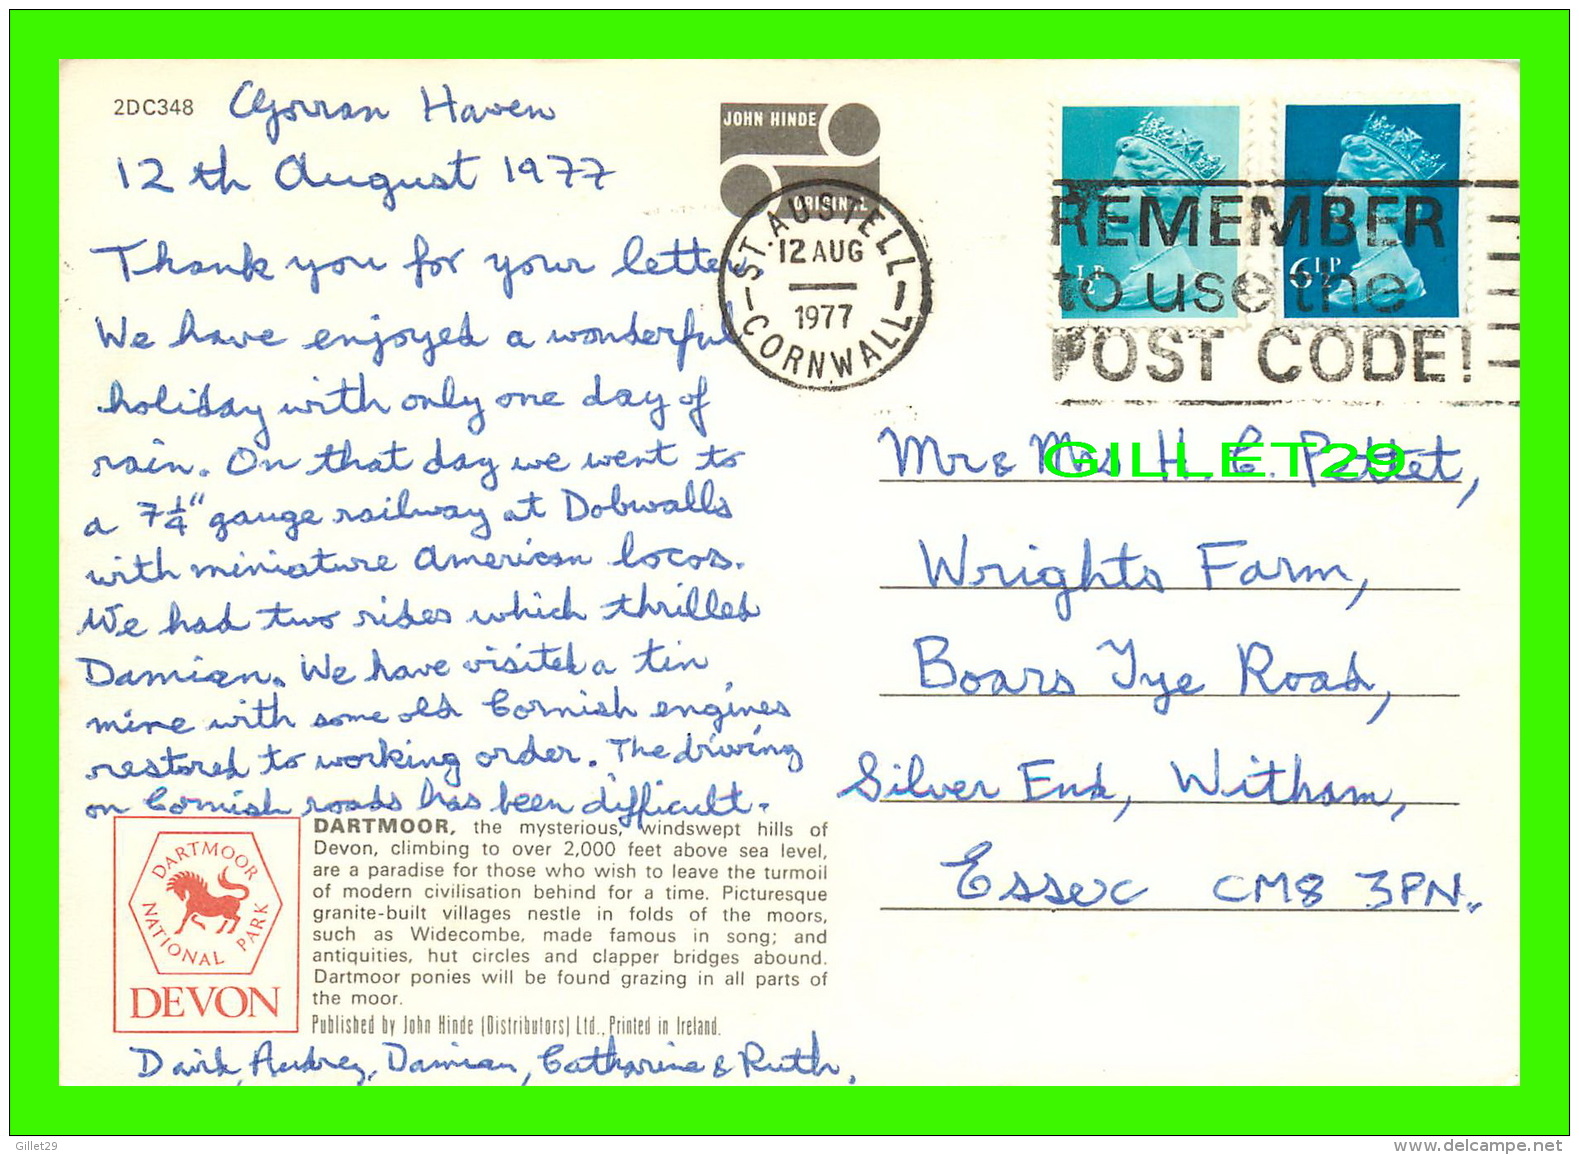 2DC348 Gorran Haven
12th August 1977
Thank you for your letter
We have enjoyed a wonderful
holiday with only one day of
rain. On that day we went to
a 7¼" gauge railway at Dobwalls
with miniature American locos.
We had two rides which thrilled
Damian. We have visited a tin
mine with some old Cornish engines
restored to working order. The driving
on Cornish roads has been difficult.
DARTMOOR
NATIONAL PARK
DEVON
DARTMOOR, the mysterious, windswept hills of
Devon, climbing to over 2,000 feet above sea level,
are a paradise for those who wish to leave the turmoil
of modern civilisation behind for a time. Picturesque
granite-built villages nestle in folds of the moors,
such as Widecombe, made famous in song; and
antiquities, hut circles and clapper bridges abound.
Dartmoor ponies will be found grazing in all parts of
the moor.
Published by John Hinde (Distributors) Ltd., Printed in Ireland.
David, Audrey, Damian, Catharine & Ruth.
JOHN HINDE
ORIGINAL
ST. AUSTELL
12 AUG
1977
CORNWALL
½P
6½P
REMEMBER
to use the
POST CODE!
Mr & Mrs H. C. Pettet,
GILLET29
Wrights Farm,
Boars Tye Road,
Silver End, Witham,
Essex CM8 3PN.
Gillet29
http://www.delcampe.net